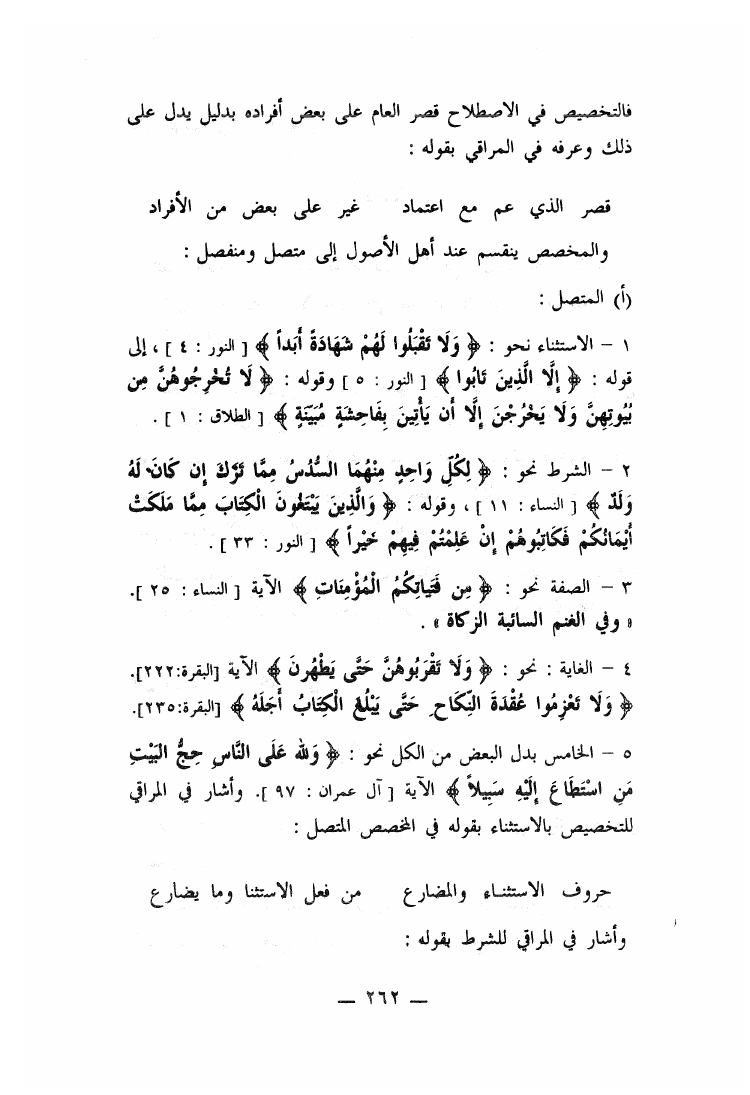 فالتخصيص في الاصطلاح قصر العام على بعض أفراده بدليل يدل على
ذلك وعرفه في المراقي بقوله :
قصر الذي عم مع اعتماد غير على بعض من الأفراد
والمخصص ينقسم عند أهل الأصول إلى متصل ومنفصل :
(أ) المتصل :
١ – الاستثناء نحو : ﴿ وَلَا تَقْبَلُوا لَهُمْ شَهَادَةً أَبَداً ﴾ [ النور : ٤ ] ، إلى
قوله : ﴿ إِلَّا الَّذِينَ تَابُوا ﴾ [ النور : ٥ ] وقوله : ﴿ لَا تُخْرِجُوهُنَّ مِن
بُيُوتِهِنَّ وَلَا يَخْرُجْنَ إِلَّا أَن يَأْتِينَ بِفَاحِشَةٍ مُبَيِّنَةٍ ﴾ [ الطلاق : ١ ] .
٢ – الشرط نحو : ﴿ لِكُلِّ وَاحِدٍ مِنْهُمَا السُّدُسُ مِمَّا تَرَكَ إِن كَانَ لَهُ
وَلَدٌ ﴾ [ النساء : ١١ ] ، وقوله : ﴿ وَالَّذِينَ يَبْتَغُونَ الْكِتَابَ مِمَّا مَلَكَتْ
أَيْمَانُكُمْ فَكَاتِبُوهُمْ إِنْ عَلِمْتُمْ فِيهِمْ خَيْراً ﴾ [ النور : ٣٣ ] .
٣ – الصفة نحو : ﴿ مِن فَتَيَاتِكُمُ الْمُؤْمِنَاتِ ﴾ الآية [ النساء : ٢٥ ].
« وفي الغنم السائبة الزكاة » .
٤ – الغاية : نحو : ﴿ وَلَا تَقْرَبُوهُنَّ حَتَّى يَطْهُرنَ ﴾ الآية [البقرة:٢٢٢].
﴿ وَلَا تَعْزِمُوا عُقْدَةَ النِّكَاحِ حَتَّى يَبْلُغَ الْكِتَابُ أَجَلَهُ ﴾ [البقرة:٢٣٥].
٥ – الخامس بدل البعض من الكل نحو : ﴿ وَلله عَلَى النَّاسِ حِجُّ البَيْتِ
مَنِ اسْتَطَاعَ إِلَيْهِ سَبِيلاً ﴾ الآية [ آل عمران : ٩٧ ]. وأشار في المراقي
للتخصيص بالاستثناء بقوله في المخصص المتصل :
حروف الاستثناء والمضارع من فعل الاستثنا وما يضارع
وأشار في المراقي للشرط بقوله :
— ٢٦٢ —